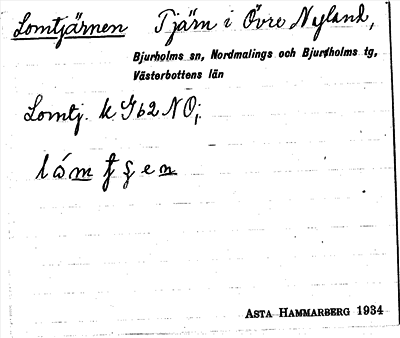 Lomtjärnen Tjärn i Övre Nyland,
Bjurholms sn, Nordmalings och Bjurholms tg,
Västerbottens län
Lomtj. k. Gb2 NO;
ASTA HAMMARBERG 1934